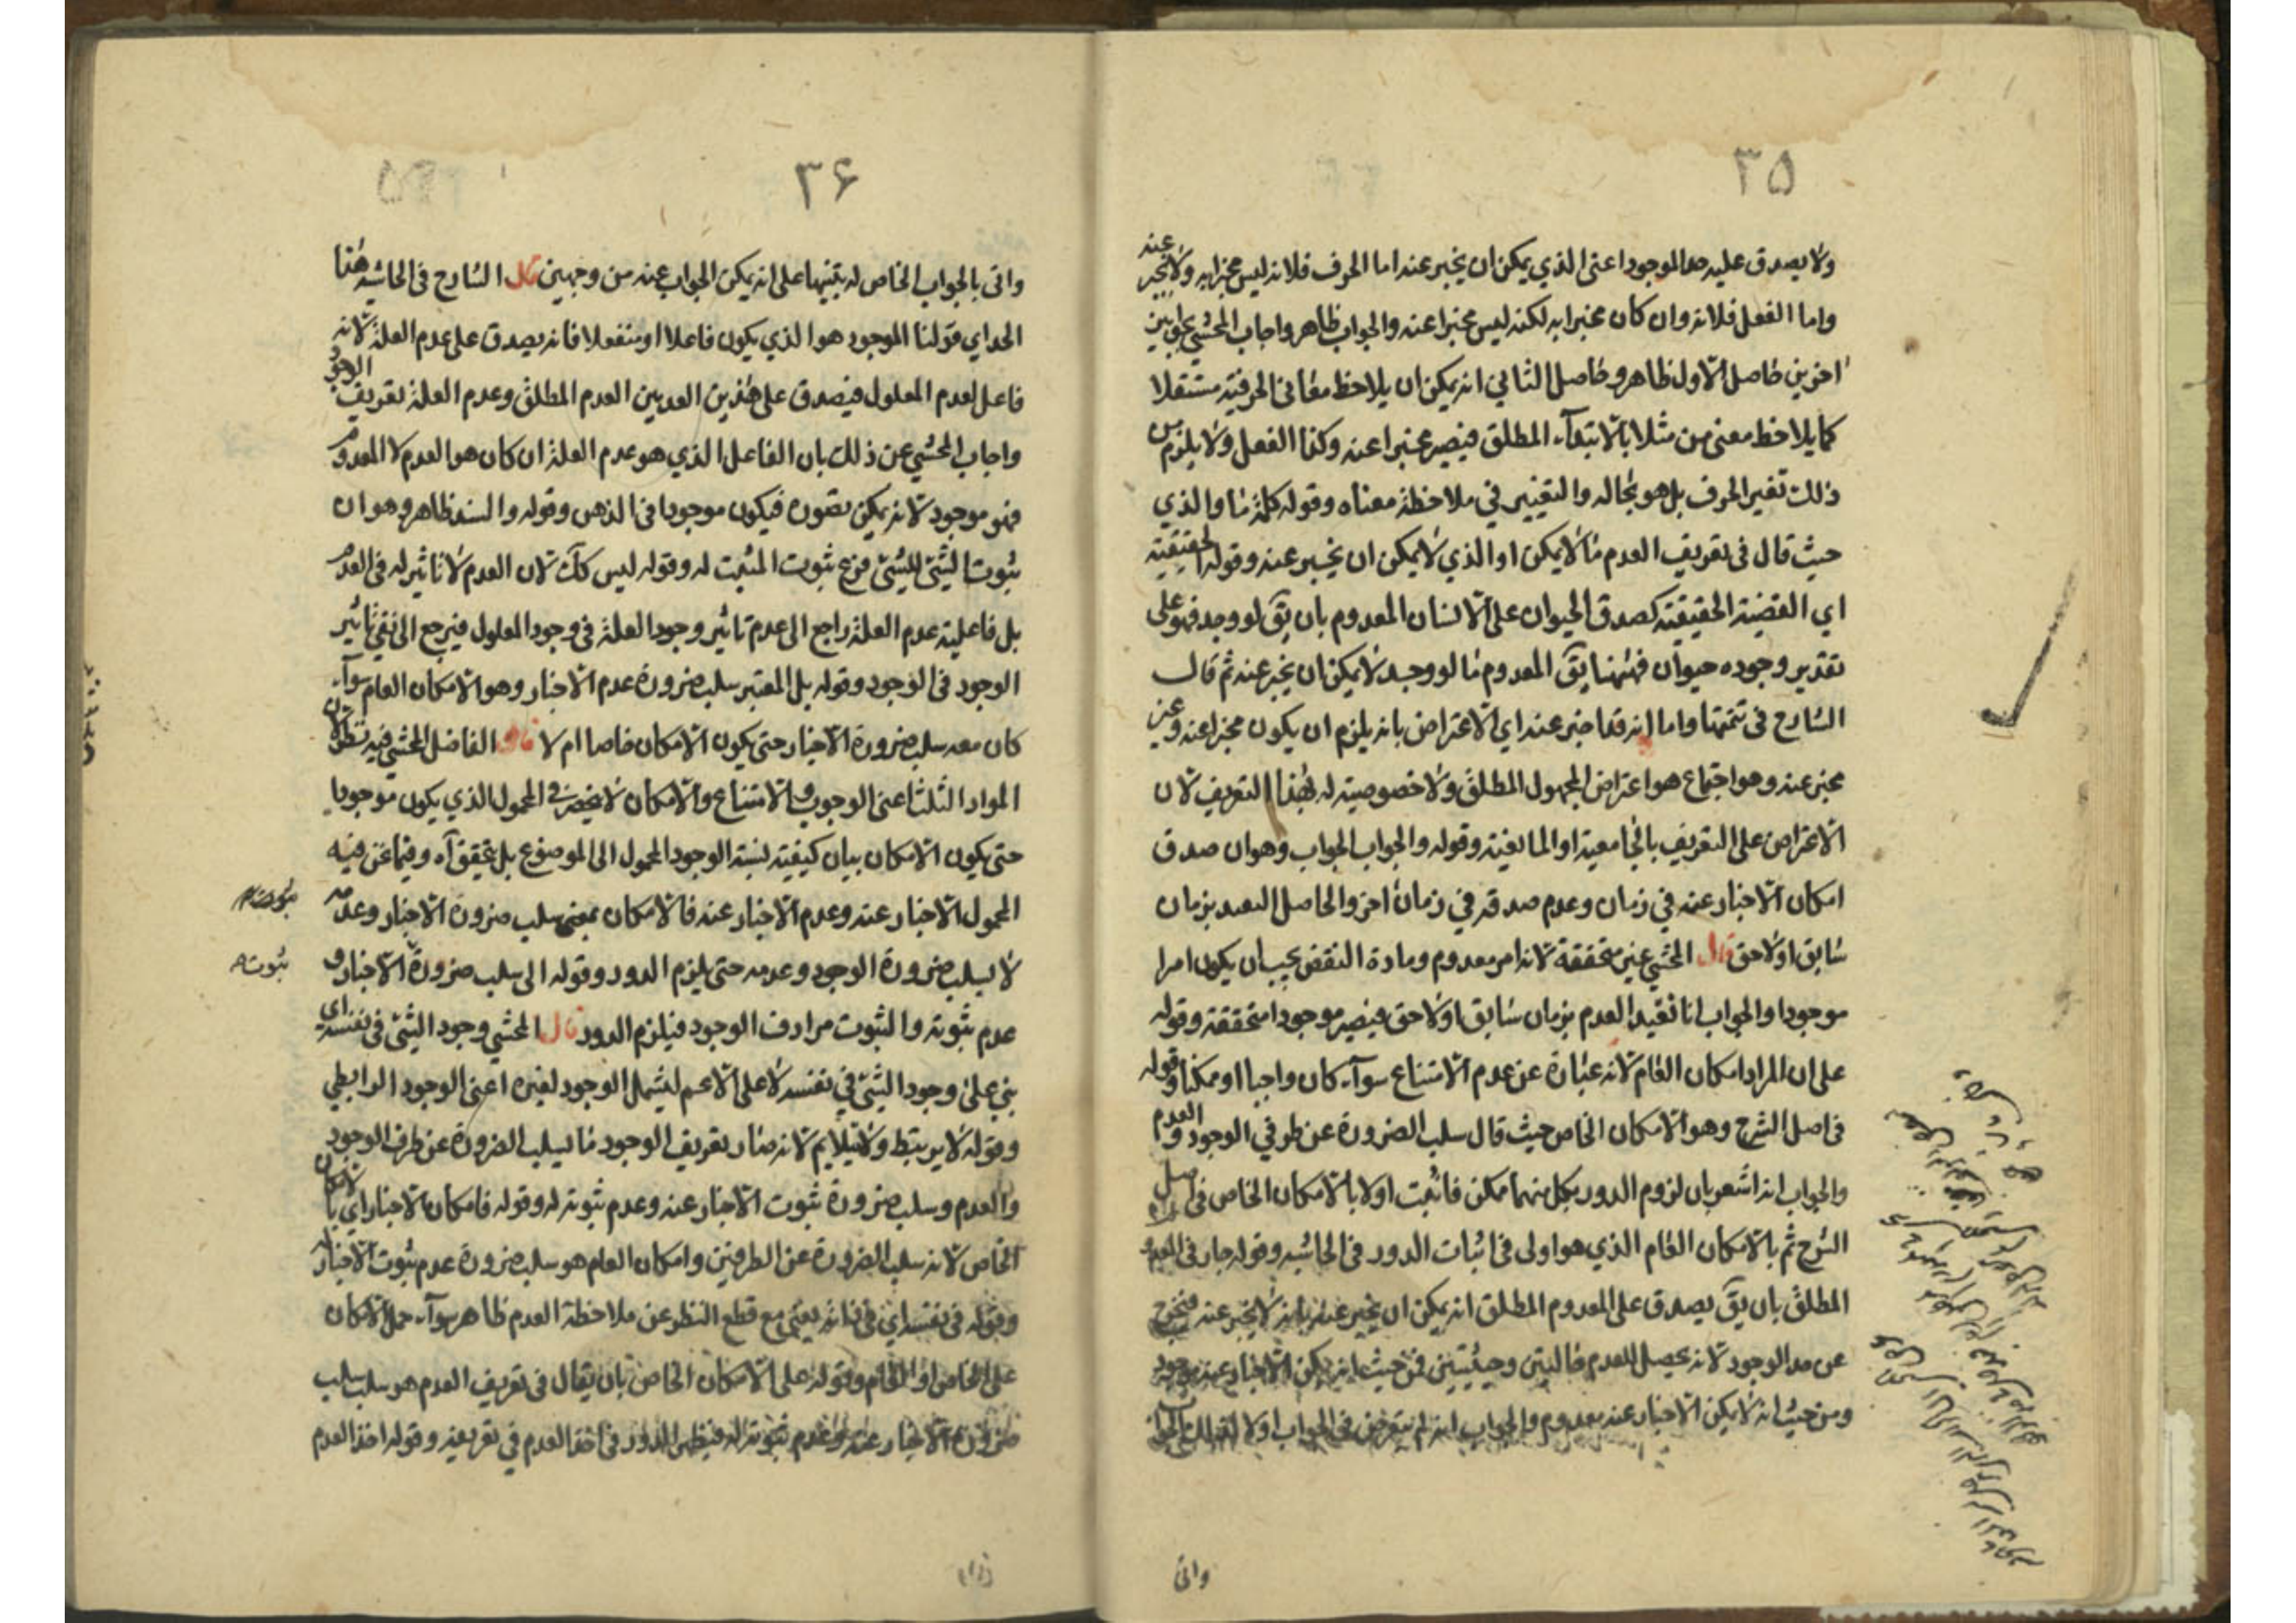 ٣٥
ولا يصدق عليه حد الموجود اعنى الذي يمكن ان يخبر عنه اما الحرف فلانه ليس مخبرا به ولا يخبر عنه
واما الفعل فلانه وان كان مخبرا به لكنه ليس مخبرا عنه والجواب ظاهر واجاب المحشي بجوابين
اخرين حاصل الاول ظاهر وحاصل الثاني انه يمكن ان يلاحظ معاني الحرفية مستقلا
كما يلاحظ معنى من مثلا بالابتداء المطلق فيصير مخبرا عنه وكذا الفعل ولا يلزم من
ذلك تغير الحرف بل هو بحاله والتغيير في ملاحظة معناه وقوله كلمة ما والذي
حيث قال فى تعريف العدم ما لا يمكن او الذي لا يمكن ان يخبر عنه وقوله الحقيقية
اي القضية الحقيقية كصدق الحيوان على الانسان المعدوم بان يق لو وجد فهو على
تقدير وجوده حيوان فههنا يق المعدوم ما لو وجد لا يمكن ان يخبر عنه ثم قال
الشارح فى تتمتها واما انه قد اخبر عنه اي الاعتراض بانه يلزم ان يكون مخبرا عنه وغير
مخبر عنه وهو اجتماع هو اعتراض المجهول المطلق ولا خصوصية له بهذا التعريف لان
الاعتراض على التعريف بالجامعية او المانعية وقوله والجواب الجواب وهو ان صدق
امكان الاخبار عنه في زمان وعدم صدقه في زمان اخر والحاصل التقييد بزمان
سابق او لاحق قال المحشي غير متحققة لانه امر معدوم ومادة النقض يجب ان يكون امرا
موجودا والجواب انا نقيد العدم بزمان سابق او لاحق فيصير موجودا متحققة وقوله
على ان المراد امكان العام لانه عبارة عن عدم الامتناع سواء كان واجبا او ممكنا وقوله
فى اصل الشرح وهو الامكان الخاص حيث قال سلب الضرورة عن طرفي الوجود والعدم
والجواب انه اشعر بان لزوم الدور بكل منهما ممكن فاثبت اولا بالامكان الخاص فى اصل
الشرح ثم بالامكان العام الذي هو اولى فى اثبات الدور فى الحاشية وقوله جار فى المعدوم
المطلق بان يق يصدق على المعدوم المطلق انه يمكن ان يخبر عنه بانه لا يخبر عنه فيخرج
عن حد الوجود لانه يحصل للعدم حالتين وحيثيتين فمن حيث انه يمكن الاخبار عنه موجود
ومن حيث انه لا يمكن الاخبار عنه معدوم والجواب انه لم يتعرض فى الجواب اولا
واتى
٣۶
واتى بالجواب الخاص له تنبيها على انه يمكن الجواب عنه من وجهين قال الشارح فى الحاشية هذا
الحد اي قولنا الموجود هو الذي يكون فاعلا او منفعلا فانه يصدق على عدم العلة لانه
فاعل لعدم المعلول فيصدق على هذين العدمين العدم المطلق وعدم العلة تعريف الوجود
واجاب المحشي عن ذلك بان الفاعل الذي هو عدم العلة ان كان هو العدم لا المعدوم
فهو موجود لانه يمكن تصوره فيكون موجودا فى الذهن وقوله والسند ظاهر وهو ان
ثبوت الشئ للشئ فرع ثبوت المثبت له وقوله ليس كك لان العدم لا تاثير له فى العدم
بل فاعلية عدم العلة راجع الى عدم تاثير وجود العلة فى وجود المعلول فيرجع الى نفي تاثير
الوجود فى الوجود وقوله بل المعتبر سلب ضرورة عدم الاخبار وهو الامكان العام سواء
كان معه سلب ضرورة الاخبار حتى يكون الامكان خاصا ام لا قال الفاضل المحشي فيه نظر لان
المواد الثلث اعنى الوجوب والامتناع والامكان لا ينحصر فى المحمول الذي يكون موجودا
حتى يكون الامكان بيان كيفية نسبة الوجود المحمول الى الموضوع بل يتحقق آه وفيما نحن فيه
المحمول الاخبار عنه وعدم الاخبار عنه فالامكان بمعنى سلب ضرورة الاخبار وعدمه
لا لسلب ضرورة الوجود وعدمه حتى يلزم الدور وقوله الى سلب ضرورة الاخبار و
عدم ثبوته والثبوت مرادف الوجود فيلزم الدور قال المحشي وجود الشئ فى نفسه اي
بني على وجود الشئ في نفسه لا على الاعم ليشمل الوجود لغيره اعنى الوجود الرابطي
وقوله لا يرتبط ولا يلايم لانه صار تعريف الوجود ما ليسلب الضرورة عن طرف الوجود
والعدم وسلب ضرورة ثبوت الاخبار عنه وعدم ثبوته له وقوله فامكان الاخبار اي بالامكان
الخاص لانه سلب الضرورة عن الطرفين وامكان العام هو سلب ضرورة عدم ثبوت الاخبار له
وقوله فى نفسه اي فى ذاته يعني مع قطع النظر عن ملاحظة العدم ظاهر سواء حمل الامكان
على الخاص او العام وقوله على الامكان الخاص بان يقال فى تعريف العدم هو سلب سلب
ضرورة الاخبار عنه وعدم ثبوته له فيظهر الدور فى اخذ العدم في تعريفه وقوله اخذ العدم
ثبوت